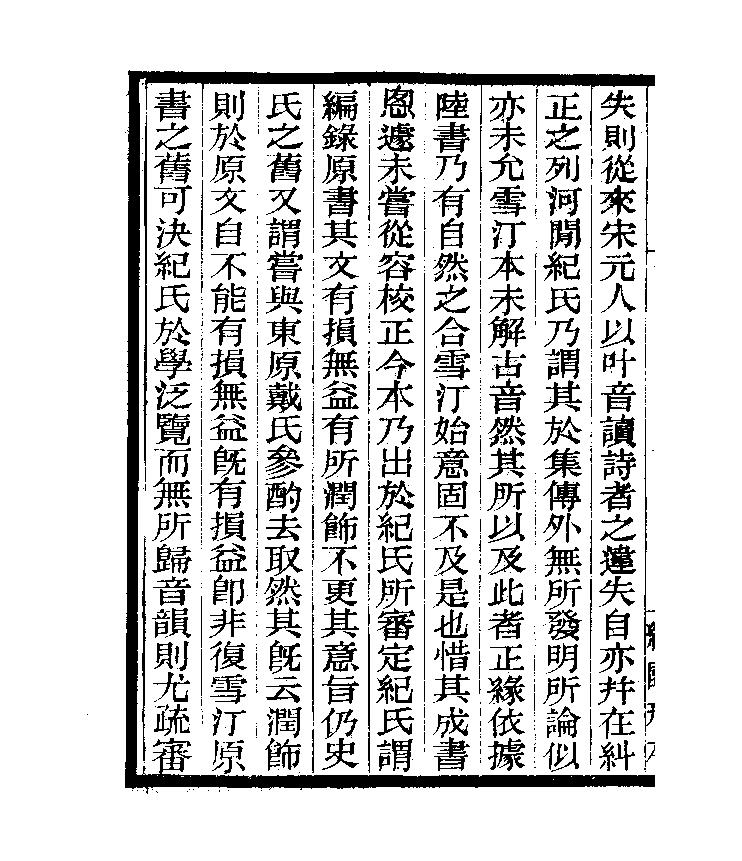 失則從來宋元人以叶音讀詩者之違失自亦幷在糾
正之列河閒紀氏乃謂其於集傳外無所發明所論似
亦未允雪汀本未解古音然其所以及此者正緣依據
陸書乃有自然之合雪汀始意固不及是也惜其成書
悤遽未嘗從容校正今本乃出於紀氏所審定紀氏謂
編錄原書其文有損無益有所潤飾不更其意旨仍史
氏之舊又謂嘗與東原戴氏參酌去取然其旣云潤飾
則於原文自不能有損無益旣有損益卽非復雪汀原
書之舊可決紀氏於學泛覽而無所歸音韻則尤疏審